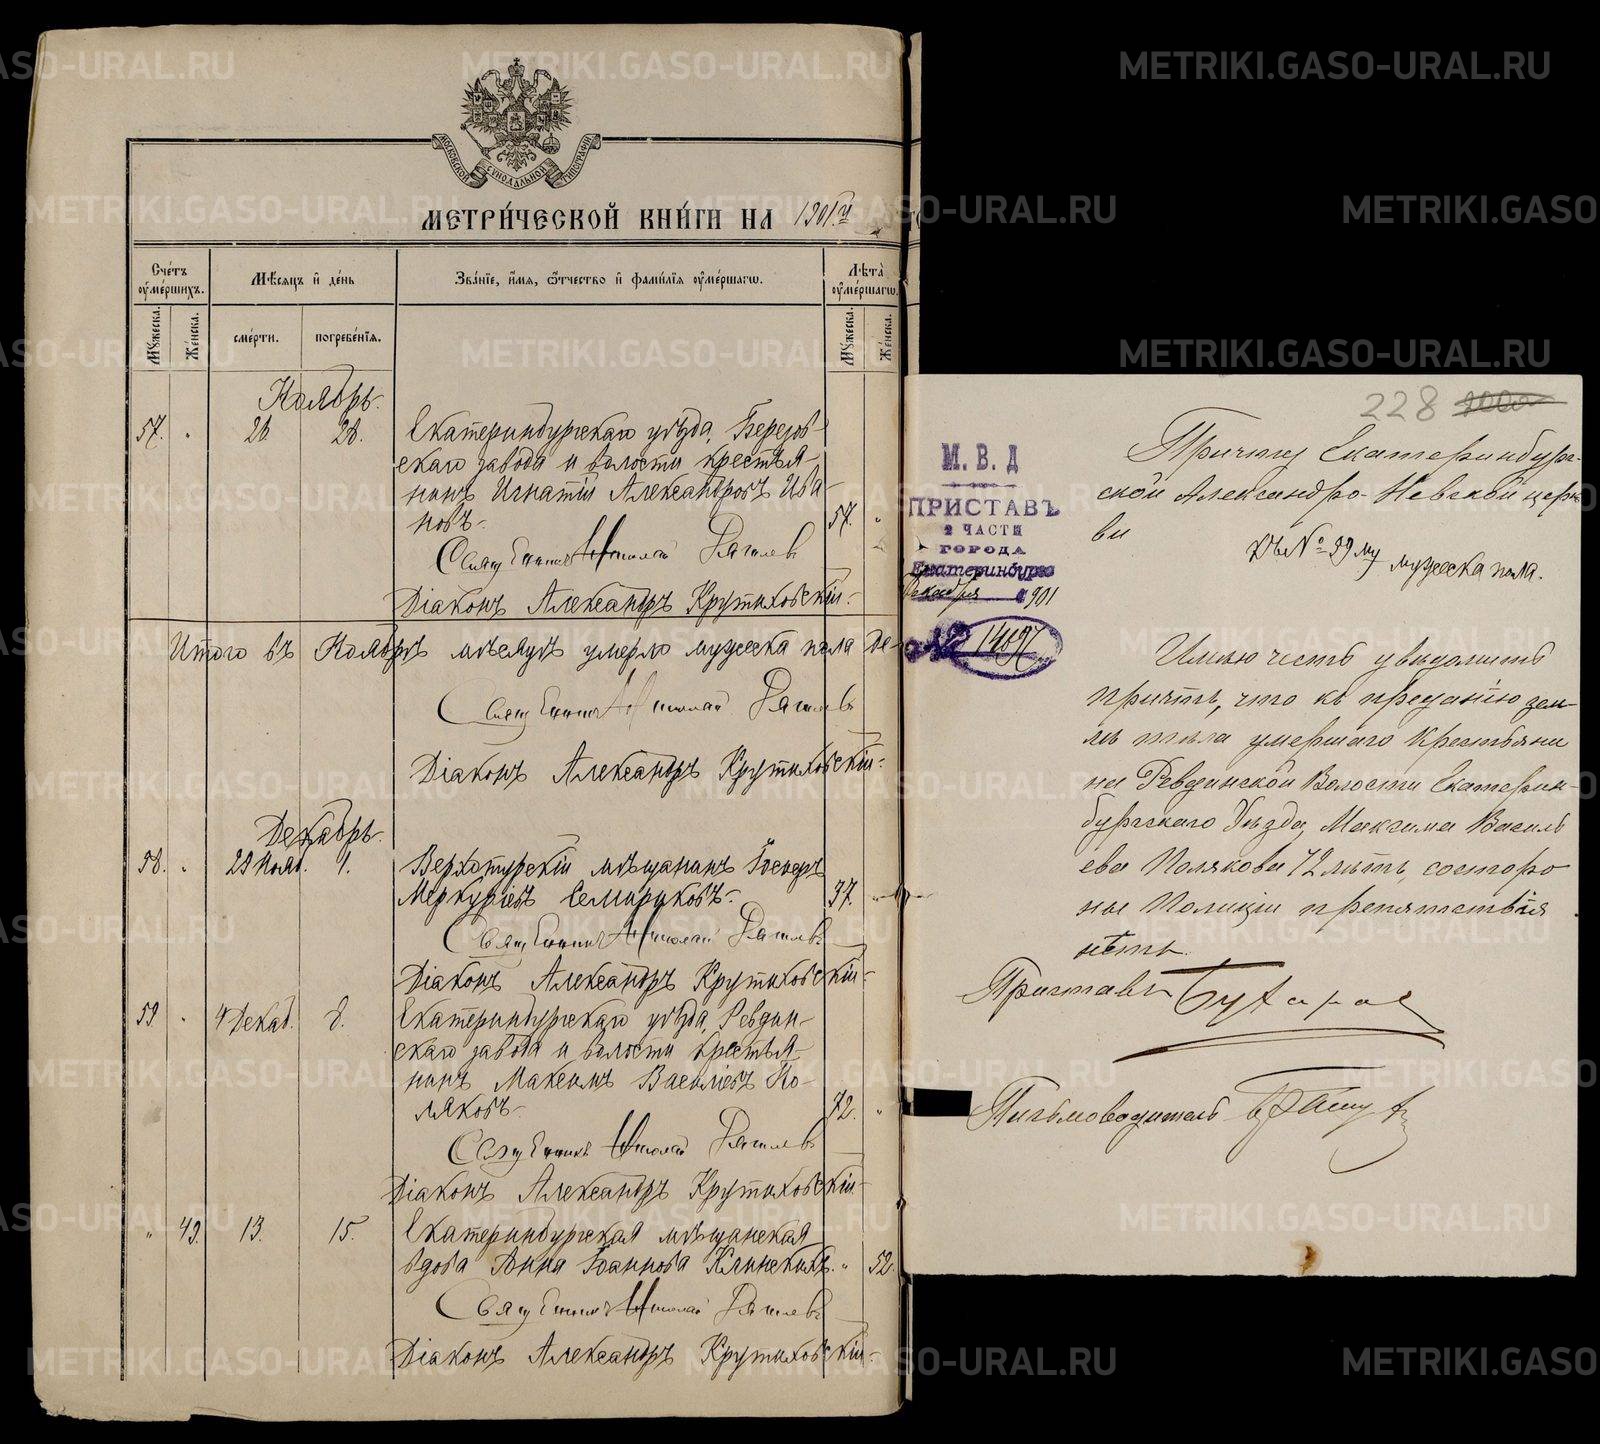 МОСКОВСКОЙ СѴНОДАЛЬНОЙ ТИПОГРАФІИ
МЕТРИ́ЧЕСКОЙ КНИ́ГИ НА 1901й
Сче́тъ ᲂу҆ме́ршихъ.
Мѣ́сяцъ и҆ де́нь
Зва́нїе, и҆́мя, ѻ҆́тчество и҆ фами́лїя ᲂу҆ме́ршагѡ.
Лѣ́та ᲂу҆ме́ршагѡ.
Мꙋ́жеска.
Же́нска.
сме́рти.
погребе́нїя.
Мꙋ́жеска.
Же́нска.
Ноябрь.
57. " 26. 28. Екатеринбургскаго уѣзда, Березов-
скаго завода и волости крестья-
нинъ Игнатій Александровъ Ива-
новъ. 57. "
Священникъ Николай
Діаконъ Александръ Крутиховскій.
Итого въ Ноябрѣ мѣсяцѣ умерло мужеска пола де-
Священникъ Николай
Діаконъ Александръ Крутиховскій.
Декабрь.
58. " 29 Нояб. 1. Верхотурскій мѣщанинъ Іосифъ
Меркуріевъ Семариковъ. 37. "
Священникъ Николай
Діаконъ Александръ Крутиховскій.
59 " 4 Декаб. 8. Екатеринбургскаго уѣзда, Ревдин-
скаго завода и волости крестья-
нинъ Максимъ Васильевъ По-
ляковъ. 72. "
Священникъ Николай
Діаконъ Александръ Крутиховскій.
" 49. 13. 15. Екатеринбургская мѣщанская
вдова Анна Іоаннова Клинскихъ. " 52.
Священникъ Николай
Діаконъ Александръ Крутиховскій.
228
М. В. Д
ПРИСТАВЪ
2 ЧАСТИ
ГОРОДА
Екатеринбурга
Декабря 1901
№ 14697
Причту Екатеринбург-
ской Александро-Невской церк-
ви
Къ № 59му мужеска пола.
Имѣю честь увѣдомить
причтъ, что къ преданію зем-
лѣ тѣла умершаго Крестьяни
на Ревдинской Волости Екатерин-
бургскаго Уѣзда, Максима Василь
ева Полякова 72 лѣтъ, со сторо
ны Полиціи препятствія
нѣтъ.
Приставъ
Письмоводитель
METRIKI.GASO-URAL.RU